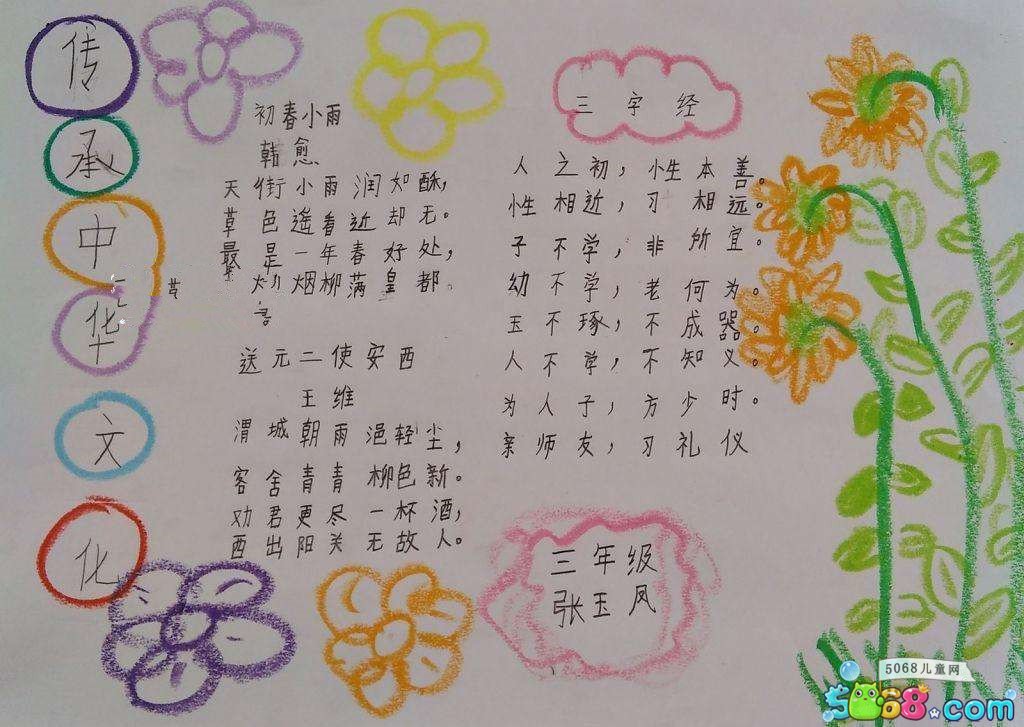 传
承
中
华
文
化
初春小雨
韩愈
天街小雨润如酥,
草色遥看近却无。
最是一年春好处,
烟柳满皇都。
送元二使安西
王维
渭城朝雨浥轻尘,
客舍青青柳色新。
劝君更尽一杯酒,
西出阳关无故人。
三字经
人之初,性本善。
性相近,习相远。
子不学,非所宜。
幼不学,老何为。
玉不琢,不成器。
人不学,不知义。
为人子,方少时。
亲师友,习礼仪
三年级
张玉凤
5068儿童网
5068.com